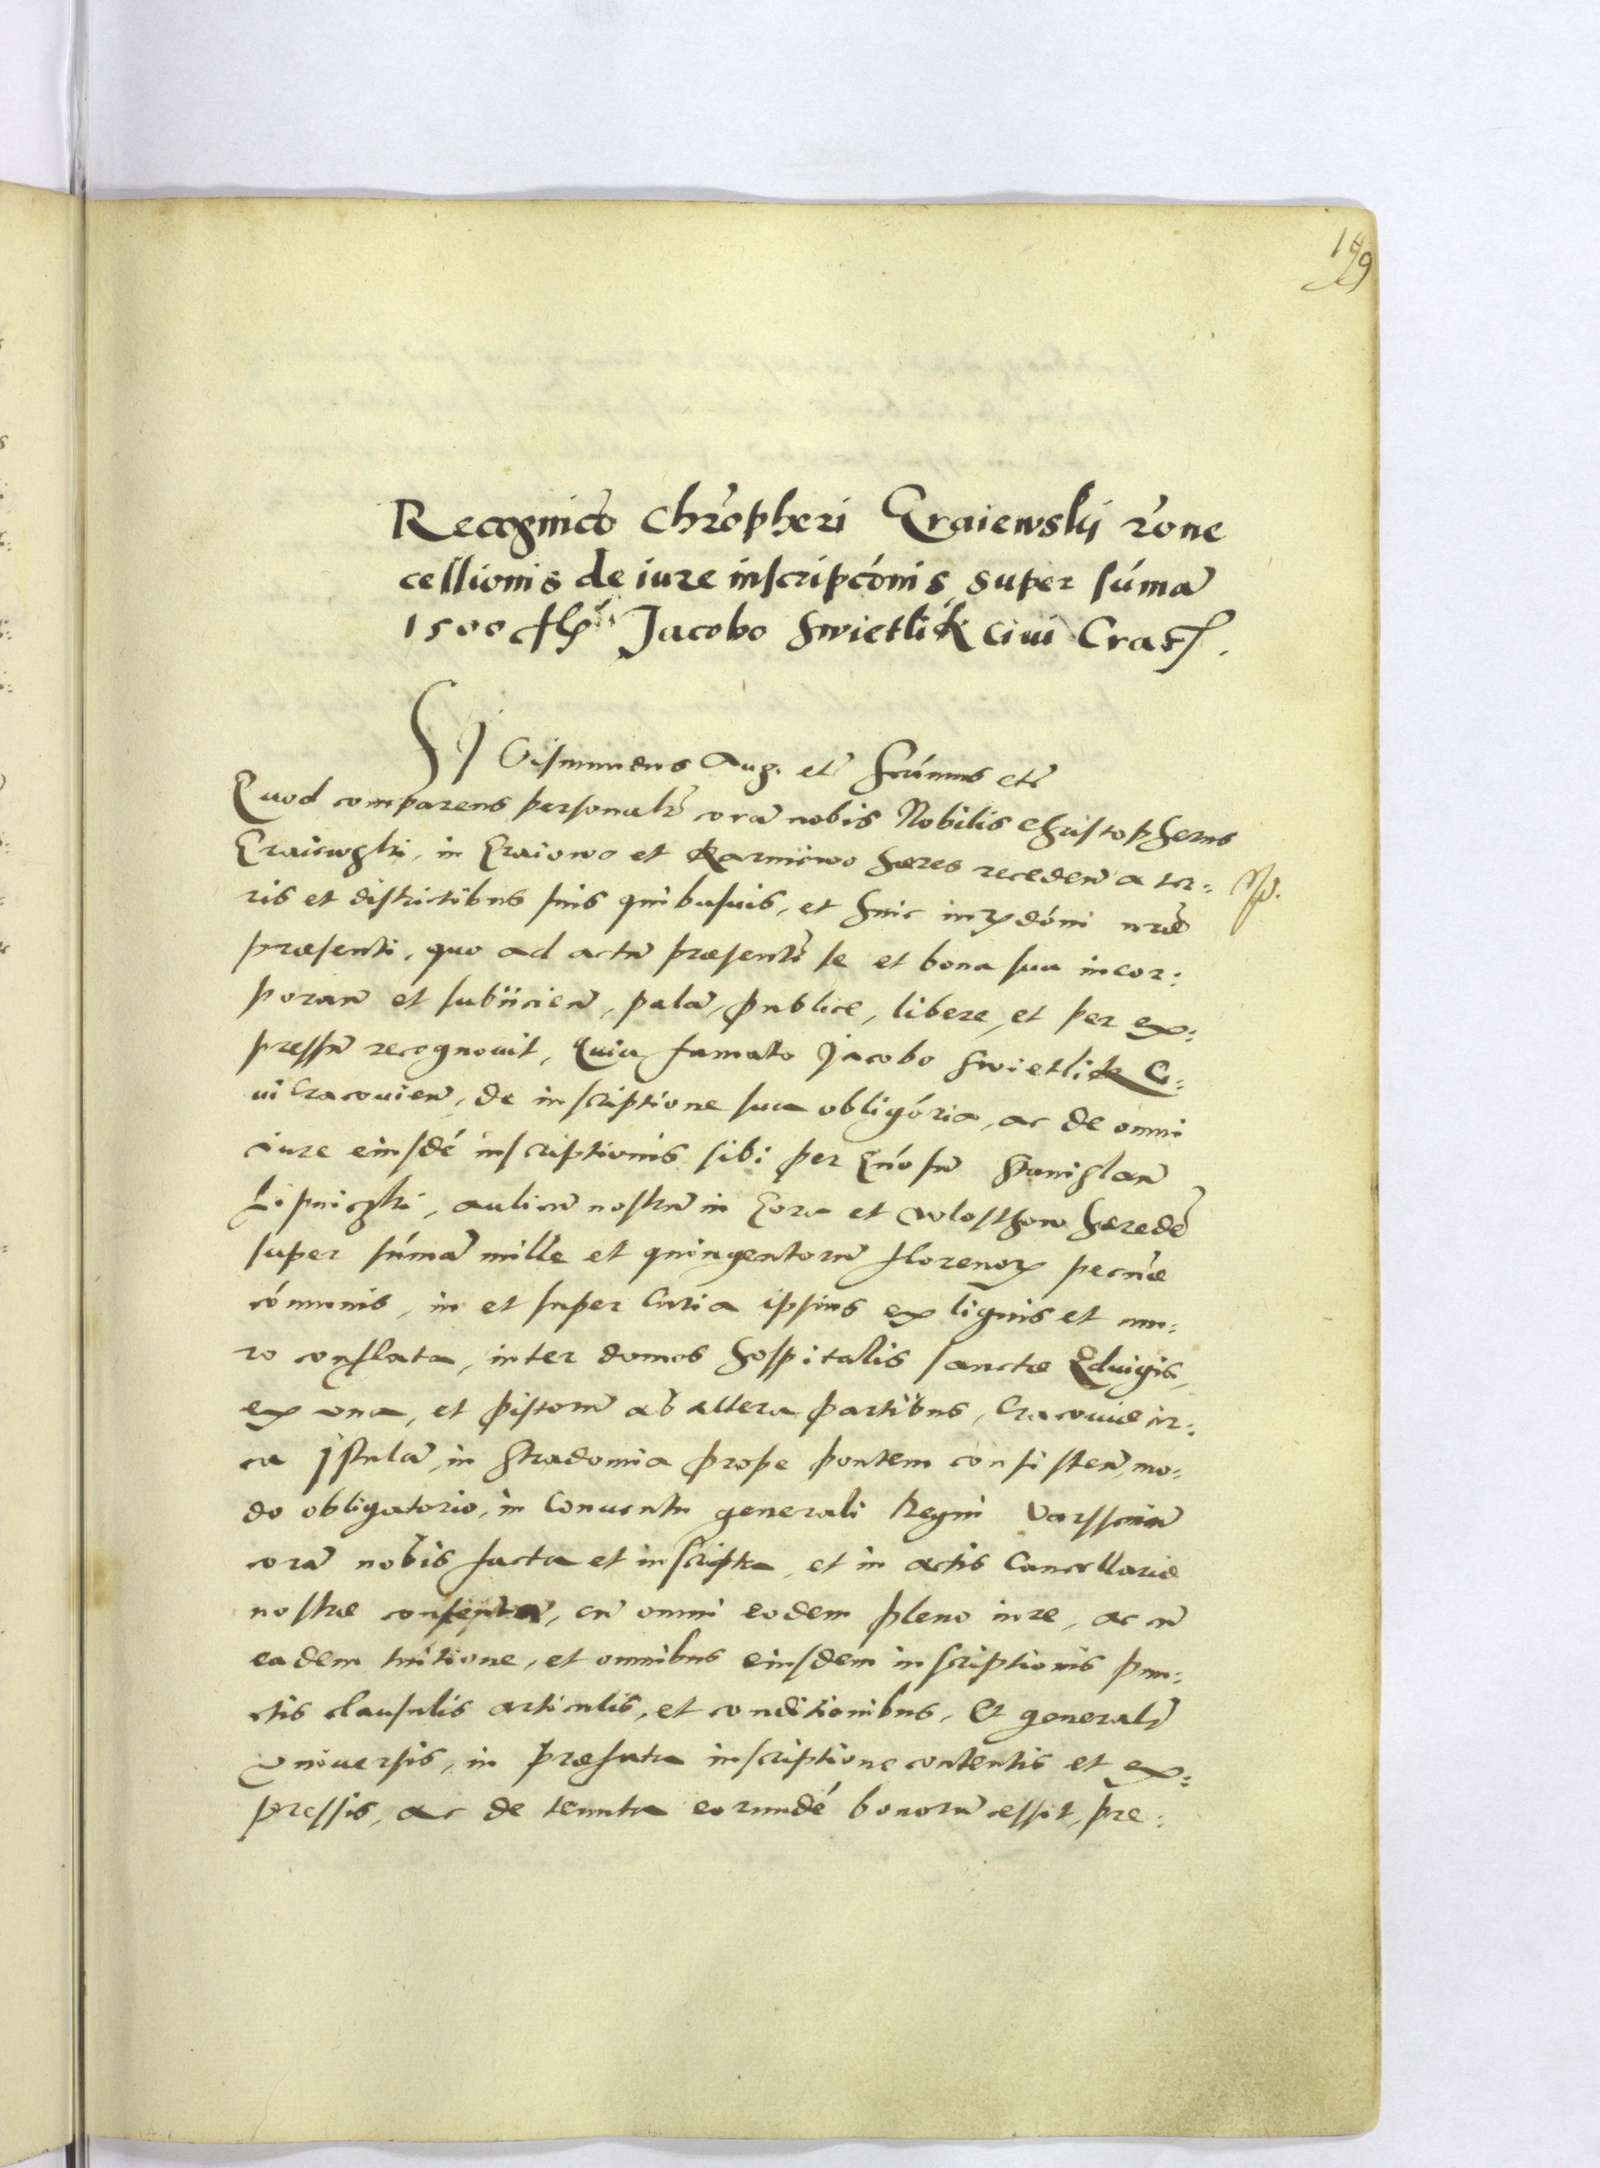 149
Recognicō Chrōpheri Graiewskij rōne
cessionis de iure inscripcōnis super sūmā
1500 fl Jacobo Swietlik Civi Crac.
SIGismundus Aug. etc̄ Scimus etc̄
Quod comparens personalr̄ corā nobis Nobilis Christopherus
Graiewski, in Graiowo et Karniowo haeres recedeñ a ter=
ris et districtibus suis quibusuis, et huic iurᵭōni nr̄ae
praesenti, quo ad actū praesentē se et bona sua incor:
porañ et subiicieñ, palā, publice, libere, et per ex=
pressū recognouit, Quia famato Jacobo Swietlik Ci=
ui Cracouieñ, de inscriptione sua obligōria, ac de omni
iure eiusdē inscriptionis sibi per Gn̄osū Stanislaū
Lipniczki, aulicū nostrū in Gora et Wolosthow haeredē
super sūmā mille et quingentorū florenorꝝ pecn̄ae
cōmunis, in et super Curia ipsius ex lignis et mu=
ro conflata, inter domos hospitalis sanctae Eduigis,
ex una, et pistorū ab altera partibus, Cracouiae cir=
ca Istulā, in Stradomia prope pontem consisteñ, mo=
do obligatorio, in Conuentu generali Regni Varssauieñ
corā nobis facta et inscripta, et in actis Cancellariae
nostrae contenta, cū omni eodem pleno iure, ac cū
eadem tuitione, et omnibus eiusdem inscriptionis pun=
ctis clausulis articulis, et conditionibus, Et generalr̄
universis, in praefata inscriptione contentis et ex=
pressis, ac de tenuta eorundē bonorū cessit, pre=